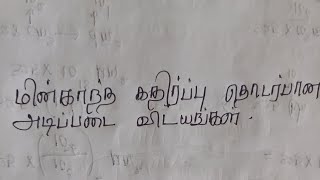 மின்காந்த கதிர்ப்பு தொடர்பான
அடிப்படை விடயங்கள்.